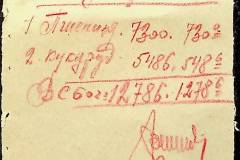 1. Пшениц. 7300. 730 0
2. кукуруд 5486. 548 6
Всього: 12786. 1278 6